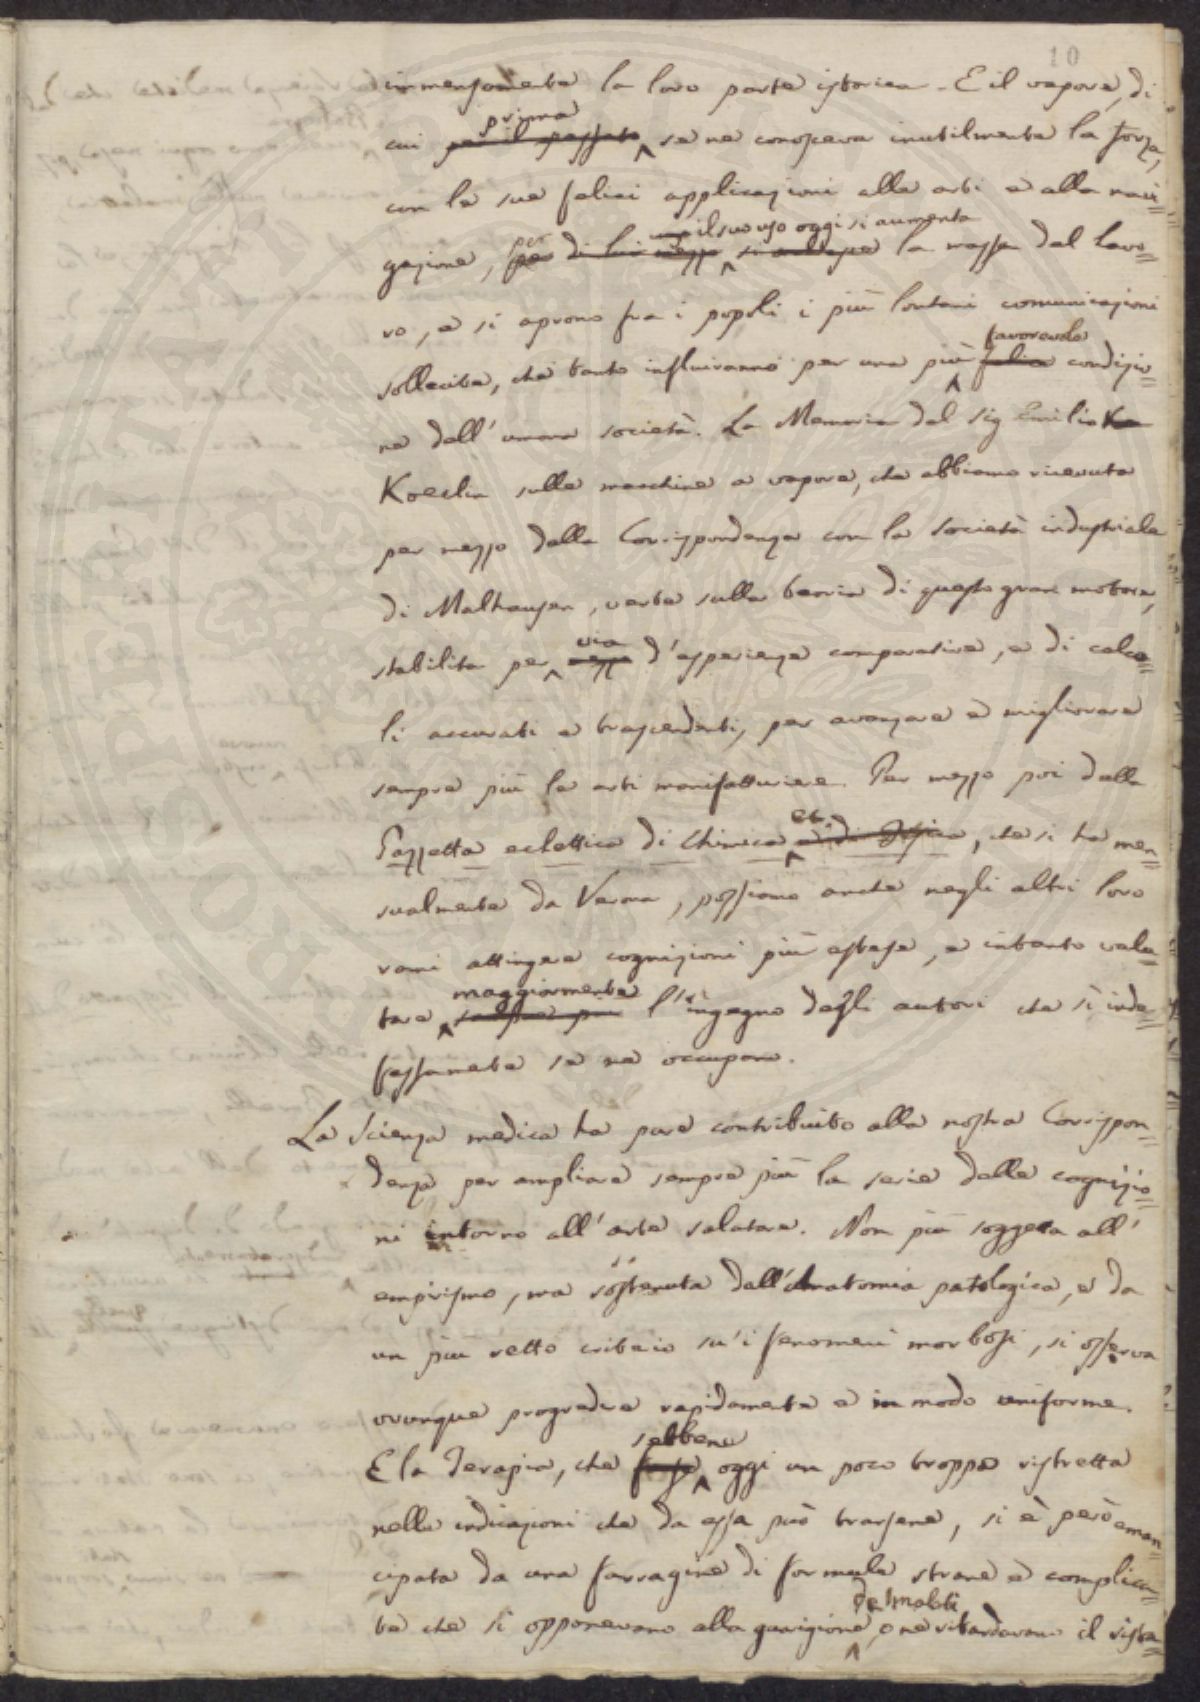 10
immensamente la loro parte istorica. E il vapore, di
prima
cui per il passato se ne conosceva inutilmente la forza,
con le sue felici applicazioni alle arti e alla navi=
pel suo uso oggi si aumenta
gazione, per di lui mezzo la massa del lavo=
ro, e si aprono fra i popoli i più lontani comunicazioni
favorevole
sollecite, che tanto influiranno per una più felice condizio=
ne dell'umana società. La Memoria del sig Emilio
Koeclin sulle macchine a vapore, che abbiamo ricevuta
per mezzo della Corrispondenza con la società industriale
di Malhausen, verte sulla teoria di questo gran motore,
via
stabilita per d'esperienze comparative, e di calco=
li accurati e trascendenti, per avanzare e migliorare
sempre più le arti manifatturiere. Per mezzo poi della
ec.
Gazzetta eclettica di Chimica e di Fisica, che si ha men=
sualmente da Verona, possiamo anche negli altri loro
rami attingere cognizioni più estese, e intanto valu=
maggiormente
tare sempre più l'ingegno degli autori che sì inde=
fessamente se ne occupano.
La Scienza medica ha pure contribuito alla nostra Corrispon=
denza per ampliare sempre più la serie delle cognizio=
ni intorno all'arte salutare. Non più soggetta all'
empirismo, ma sostenuta dall'Anatomia patologica, e da
un più retto criterio su'i fenomeni morbosi, si osserva
ovunque progredire rapidamente e in modo uniforme.
sebbene
E la Terapia, che forse oggi un poco troppo ristretta
nelle indicazioni che da essa può trarsene, si è però eman=
cipata da una farragine di formule strane e complica=
de' malati
te che si opponevano alla guarigione, o ne ritardavano il rista=